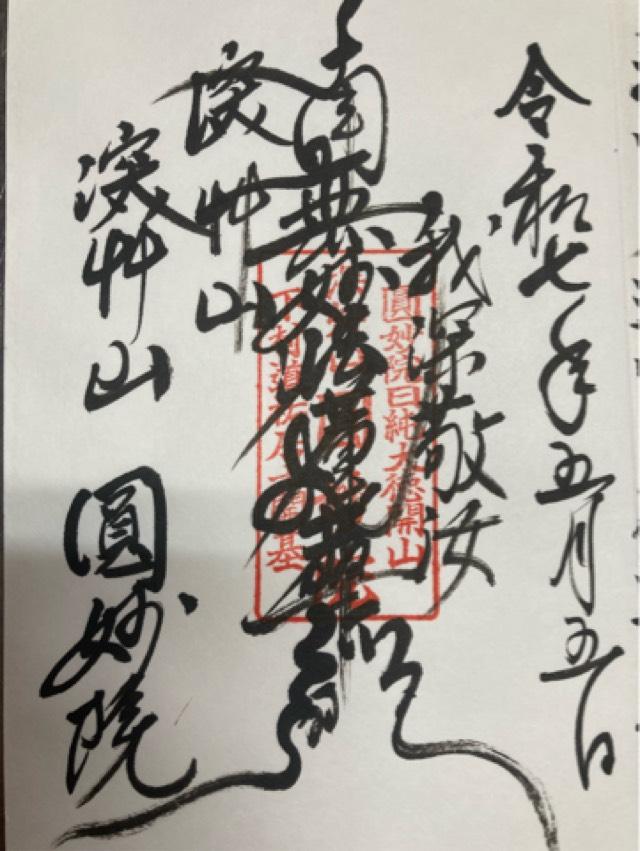 令和七年五月五日
我深敬汝
南無妙法蓮華経
深草山
深艸山 圓妙院
圓妙院日純大徳開山
開基